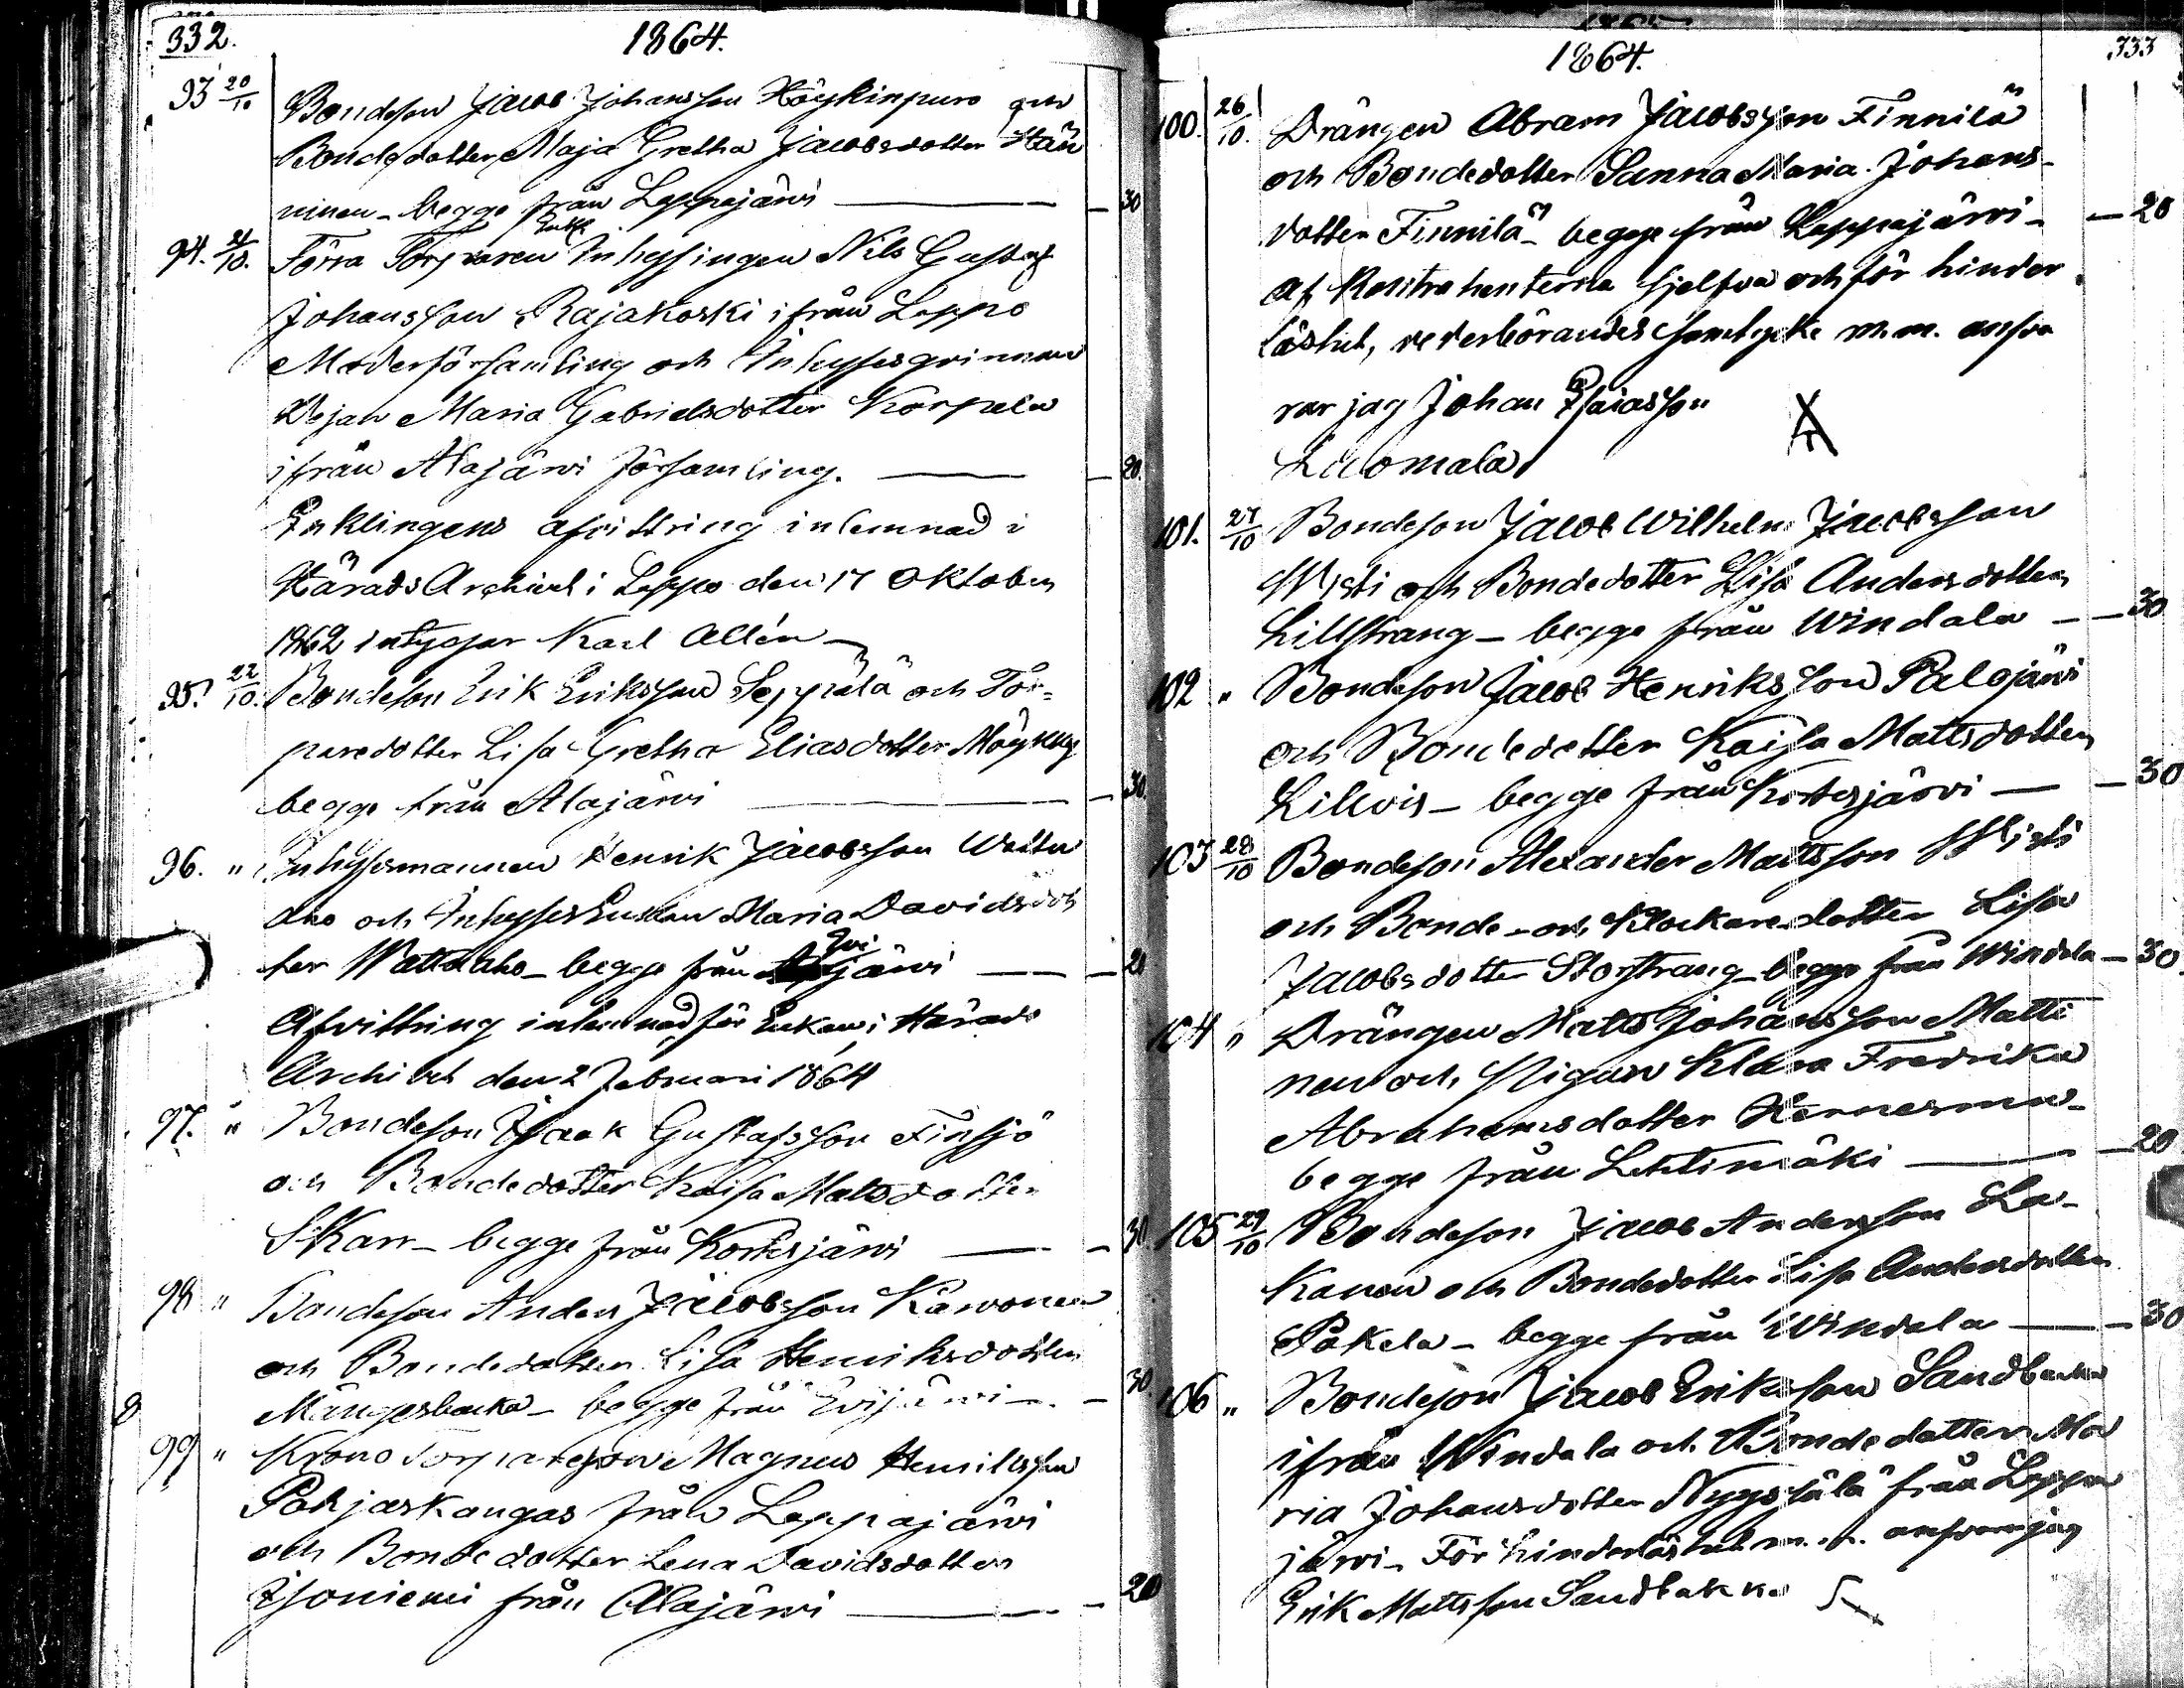 332.
1864.
93 20/10 Bondeson Jacob Johansson Höykinpuro och
Bondedotter Maja Gretha Jacobsdotter Hän
ninen – begge från Lappajärvi — 30
Enkl.
94. 21/10. Förra Torparen Inhysingen Nils Gustaf
Johansson Rajakoski ifrån Lappo
Moderförsamling och Inhysesqvinnan
Maria Gabrielsdotter Korpela
ifrån Alajärvi Församling. — 20.
Enklingens afvittring inlemnad i
Härads Archivet i Lappo den 17 Oktober
1862 intygar Karl Allén
95. 22/10. Bondeson Erik Eriksson Seppälä och Tor-
paredotter Lisa Gretha Eliasdotter Möykky
begge från Alajärvi — 30.
96. " Inhysesmannen Henrik Jacobsson Watta
aho och Inhyses Enkan Maria Davidsdot
ter Wattaaho – begge från Evijärvi — 20
Afvittring inlemnad för Enkan i Härads
Archivet den 2 Februari 1864
97. " Bondeson Isaak Gustafsson Finsjö
och Bondedotter Kaisa Mattsdotter
Skarr – begge från Kortesjärvi — 30.
98 " Bondeson Anders Jacobsson Karvonen
och Bondedotter Lisa Henriksdotter
Mångsbacka – begge från Evijärvi — 30.
99 " Krono Torpareson Magnus Henriksson
Pohjaskangas från Lappajärvi
och Bondedotter Lena Davidsdotter
Isoniemi från Alajärvi — 20
1864.
333
100. 26/10. Drängen Abram Jacobsson Finnilä
och Bondedotter Sanna Maria Johans-
dotter Finnilä – begge från Lappajärvi — 20
af Kontrahenterna sjelfva och för hinder
löshet, vederbörandes samtycke m.m. ansva
rar jag Johan Esaiasson
Luomala
101. 27/10 Bondeson Jacob Wilhelm Jacobsson
Wisti och Bondedotter Lisa Andersdotter
Lillstrang – begge från Windala — 30
102 " Bondeson Jacob Henriksson Palojärvi
och Bondedotter Kaisa Mattsdotter
Lillvis – begge från Kortesjärvi — 30
103 28/10 Bondeson Alexander Mattsson Wisti
och Bonde- och Klockaredotter Lisa
Jacobsdotter Storstrang – begge från Windala — 30
104 " Drängen Matts Johansson Matti
nen och Pigan Klara Fredrika
Abrahamsdotter Hernesmaa –
begge från Lehtimäki — 20
105 29/10 Bondeson Jacob Andersson La-
kanen och Bondedotter Lisa Andersdotter
Pokela – begge från Windala — 30
106 " Bondeson Jacob Eriksson Sandbacka
ifrån Windala och Bondedotter Ma
ria Johansdotter Nyyssälä från Lappa
järvi – För hinderlöshet m.m. ansvarar jag
Erik Mattsson Sandbakka